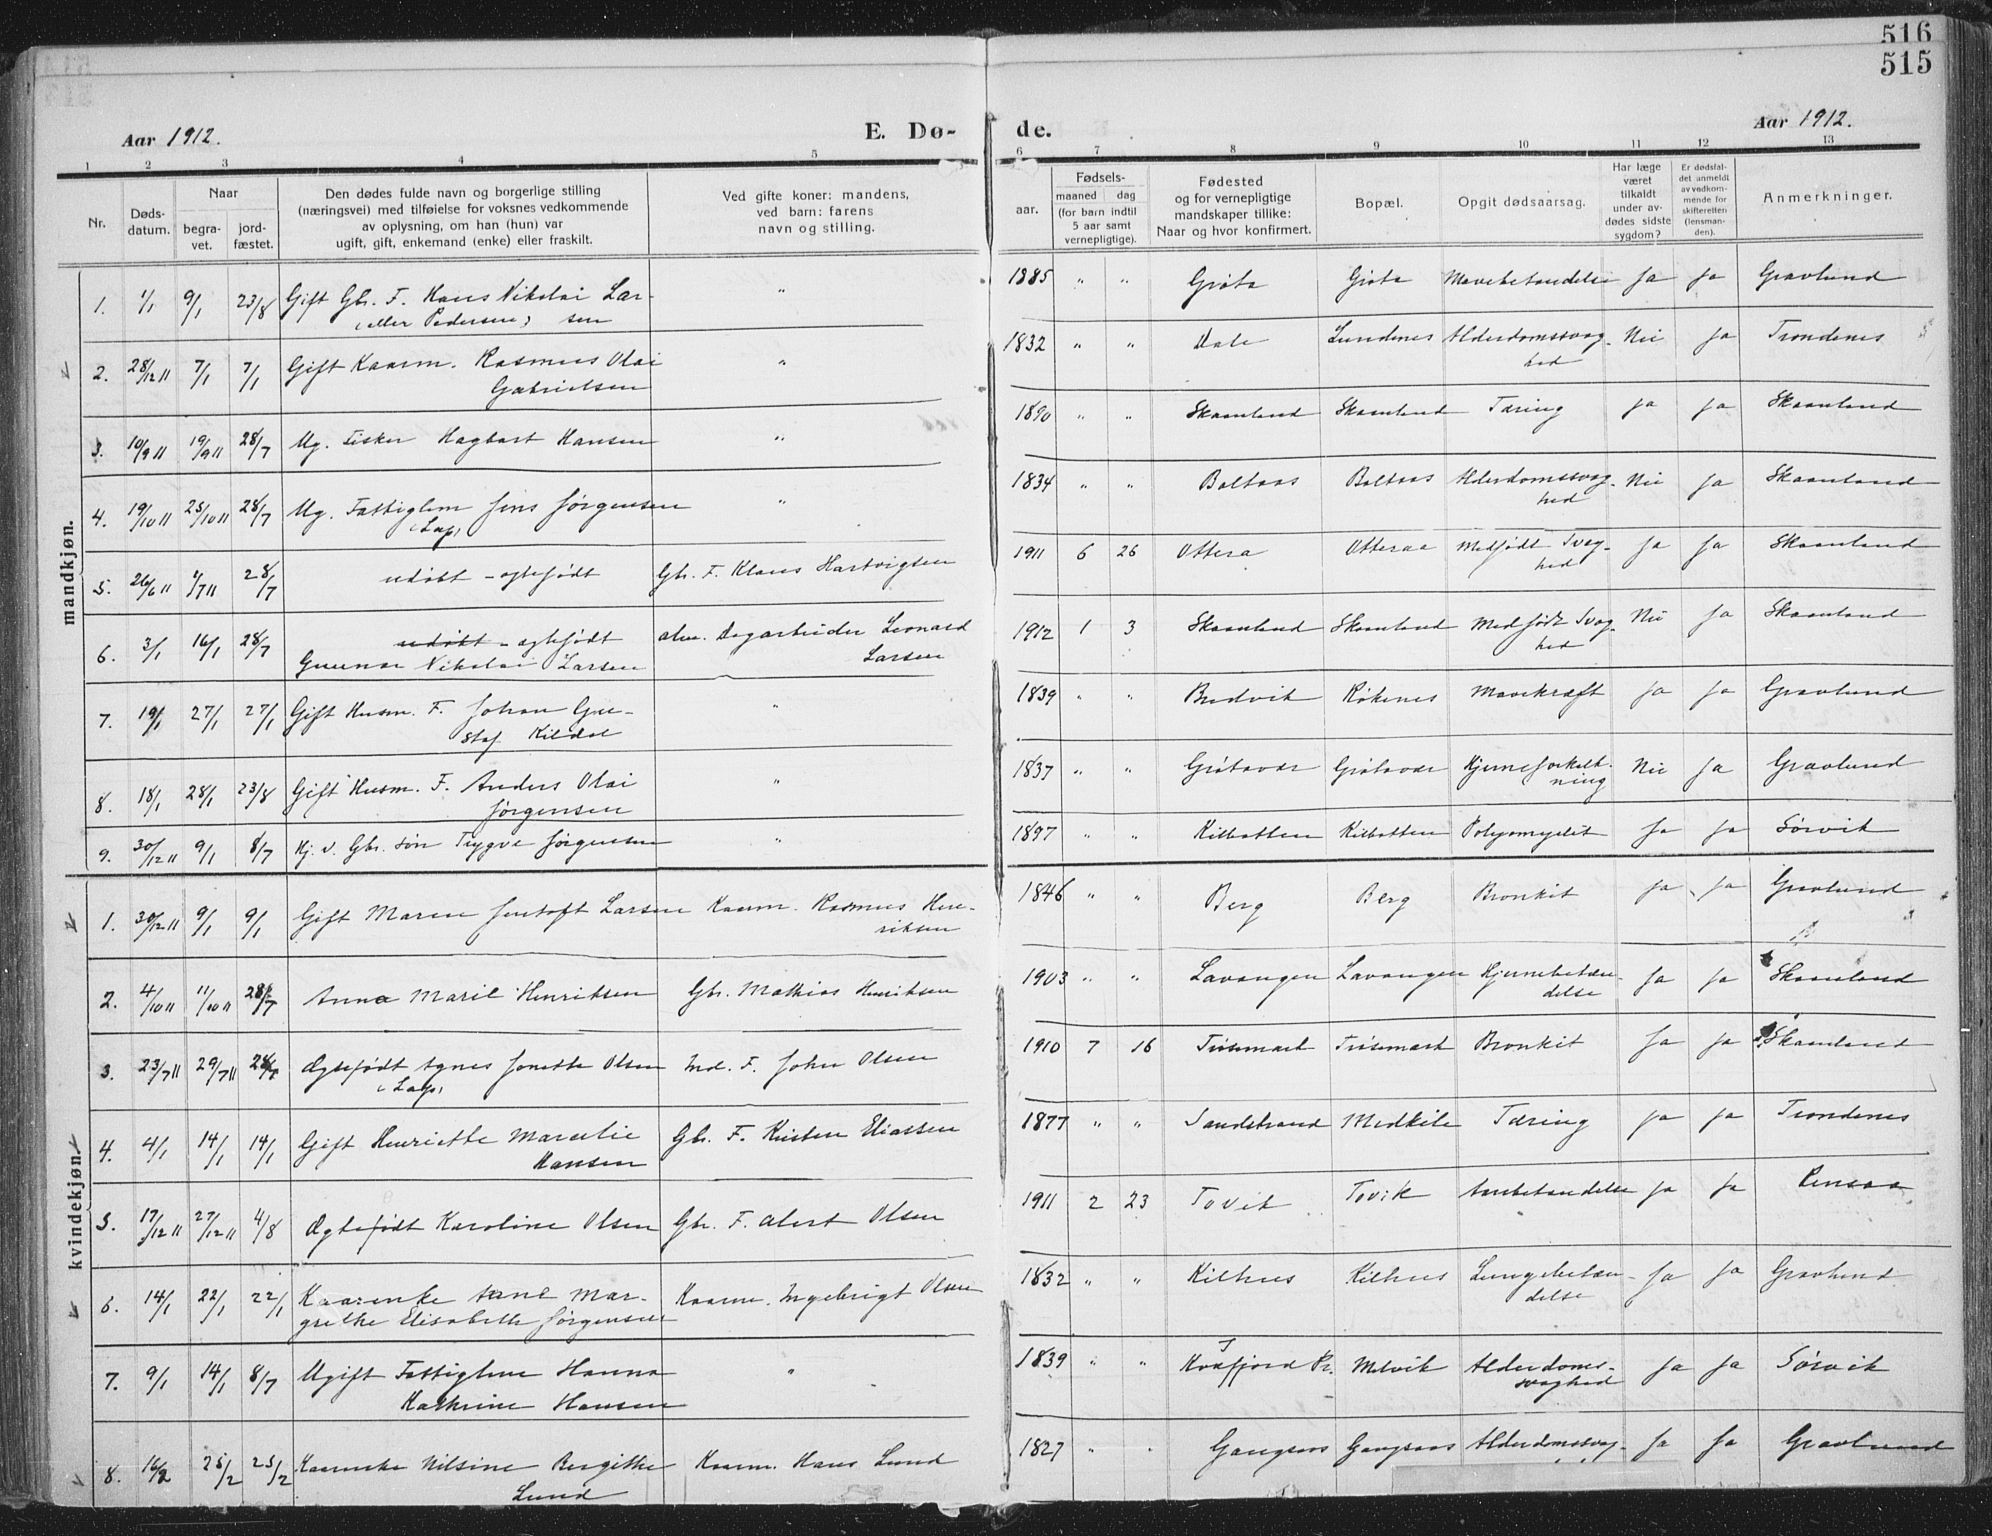 516
515
Aar 1912.
E. Dø-
de.
Aar 1912.
1 2 3 4 5 6 7 8 9 10 11 12 13
Nr.
Døds-
datum.
Naar
begra-
vet.
jord-
fæstet.
Den dødes fulde navn og borgerlige stilling
(næringsvei) med tilføielse for voksnes vedkommende
av oplysning, om han (hun) var
ugift, gift, enkemand (enke) eller fraskilt.
Ved gifte koner: mandens,
ved barn: farens
navn og stilling.
aar.
Fødsels-
maaned dag
(for barn indtil
5 aar samt
vernepligtige).
Fødested
og for vernepligtige
mandskaper tillike:
Naar og hvor konfirmert.
Bopæl.
Opgit dødsaarsag.
Har læge
været
tilkaldt
under av-
dødes sidste
sygdom?
Er dødsfal-
det anmeldt
av vedkom-
mende for
skifteretten
(lensman-
den).
Anmerkninger.
mandkjøn.
1. 1/1 9/1 23/8 Gift Gbr. F. Hans Nikolai Lar- " 1885 " " Grøta Grøta Mavebetændelse Ja Ja Gravlund
(eller Pedersen) sen
2. 28/12 11 7/1 7/1 Gift Kaarm. Rasmus Olai " 1832 " " Dale Lundenes Alderdomssvag- Nei Ja Trondenes
Gabrielsen hed
3. 10/9 11 19/9 11 28/7 Ug. Fisker Hagbart Hansen " 1890 " " Skaanland Skaanland Tæring Ja Ja Skaanland
4. 19/10 11 25/10 11 28/7 Ug. Fattiglem Jens Jørgensen " 1834 " " Boltaas Boltaas Alderdomssvag- Nei Ja Skaanland
(Lap) hed
5. 26/6 11 /7 11 28/7 udøbt - egtefødt Gbr. F. Klaus Hartvigsen 1911 6 26 Ottera Otteraa Medfødt Svag- Ja Ja Skaanland
hed
6. 3/1 16/1 28/7 udøbt - egtefødt Dagarbeider Leonard 1912 1 3 Skaanland Skaanland Medfødt Svag- Nei Ja Skaanland
Gunnar Nikolai Larsen Larsen hed
7. 19/1 27/1 27/1 Gift Husm. F. Johan Gu- " 1839 " " Bredvik Røkenes Mavekræft Ja Ja Gravlund
staf Kildal
8. 18/1 28/1 23/8 Gift Husm. F. Anders Olai " 1837 " " Grøtavær Grøtavær Hjerneforkalk- Nei Ja Gravlund
Jørgensen ning
9. 30/12 11 9/1 8/7 Kj. v. Gbr. søn Trygve Jørgensen " 1897 " " Kilbotten Kilbotten Polyomyelit Ja Ja Sørvik
kvindekjøn.
1. 30/12 11 9/1 9/1 Gift Maren Jentoft Larsen Kaarm. Rasmus Hen- 1846 " " Berg Berg Bronkit Ja Ja Gravlund
riksen
2. 4/10 11 11/10 11 28/7 Anna Marie Henriksen Gbr. Mathias Henriksen 1903 " " Lavangen Lavangen Hjernebetæn- Ja Ja Skaanland
delse
3. 23/7 11 29/7 11 28/7 Egtefødt Agnes Jonette Olsen Ind. F. Johan Olsen 1910 7 16 Trøsemark Trøsemark Bronkit Ja Ja Skaanland
(Lap)
4. 4/1 14/1 14/1 Gift Henriette Marselie Gbr. F. Kristen Eliassen 1877 " " Sandstrand Medkile Tæring Ja Ja Trondenes
Hansen
5. 17/12 11 27/12 11 4/8 Egtefødt Karoline Olsen Gbr. F. Albert Olsen 1911 2 23 Tovik Tovik Ja Ja Rensaa
6. 14/1 22/1 22/1 Kaarenke Ane Mar- Kaarm. Ingebrigt Olsen 1832 " " Kilhus Kilhus Lungebetæn- Ja Ja Gravlund
grethe Elisabeth Jørgensen delse
7. 9/1 14/1 8/7 Ugift Fattiglem Hanna " 1839 " " Kvæfjord Pr. Melvik Alderdoms- Ja Ja Sørvik
Kathrine Hansen svaghed
8. 16/2 25/2 25/2 Kaarenke Nilsine Bergitte Kaarm. Hans Lund 1827 " " Gangsaas Gangsaas Alderdomssvag- Ja Ja Gravlund
Lund